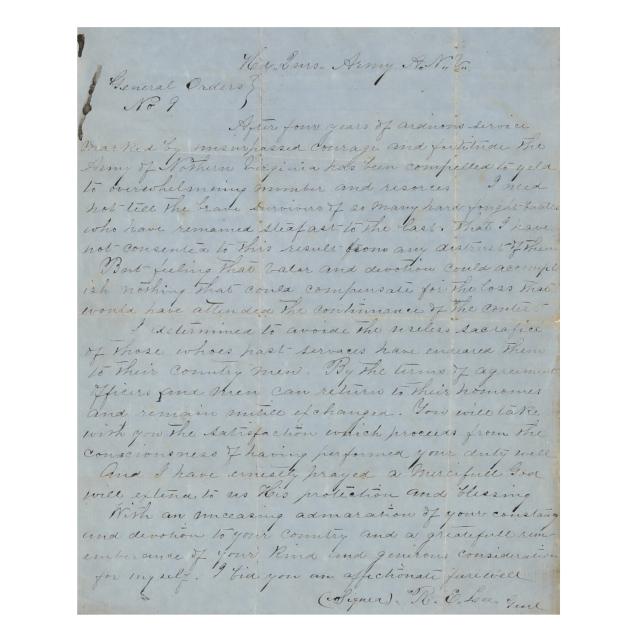 Hd. Qurs. Army N. V.
General Orders
No 9
After four years of arduous service
marked by unsurpassed courage and fortitude the
Army of Nothern Virginia has been compelled to yeld
to overwhelmeing number and resorces I need
not tell the brave survivers of so many hard fought
who have remaned steafast to the last. That I have
not consented to this result from any distrust of them
But feeling that valor and devotion could acompl
ish nothing that could compensate for the loss that
would have attended the continuance of the contest
I determined to avoide the useless sacrafice
of those whoes past services have endeared them
to their Country men. By the terms of agreement
officers and men can return to their homomes
and remain untill exchanged. You will take
with you the satisfaction which proceeds from the
consciousness of having performed your duty well
And I have ernestly prayed a Mercifull God
will extend to us His protection and blessing
With an unceasing admaration of your constancy
and devotion to your Country and a greatefull rem
emberance of your kind and generous consideration
for myself. I bid you an affictionate farewell
(Signed). R. E. Lee Genl